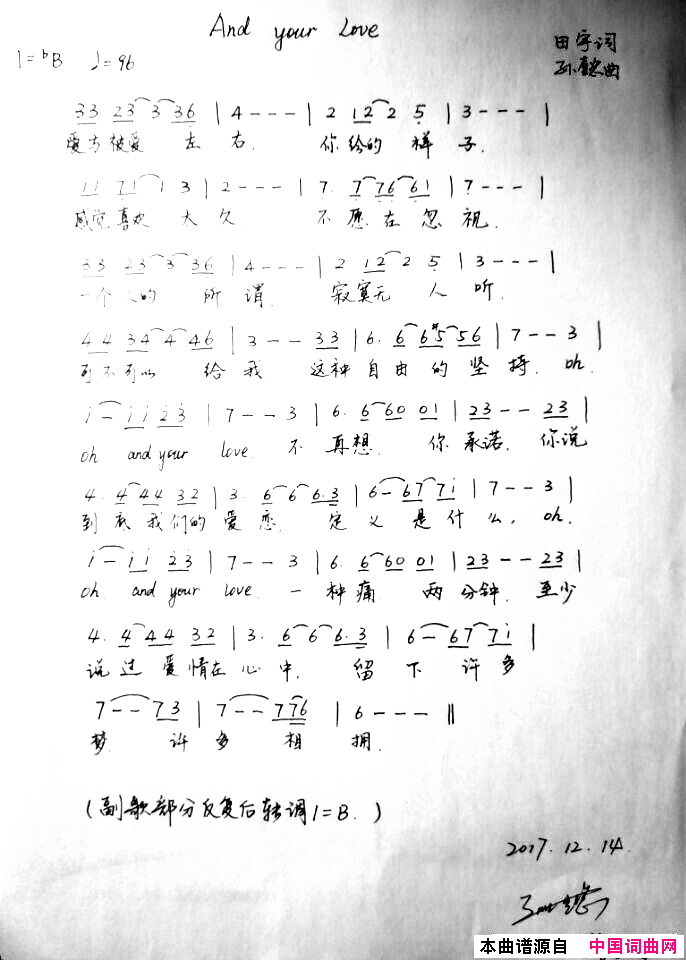 And your Love
1=ᵇB ♩=96
田宇词
孙懿曲
33 23 3 36 | 4 - - - | 2 12 2 5 | 3 - - - |
爱与被爱 左 右. 你给的 样 子.
11 71 1 3 | 2 - - - | 7. 7 76 61 | 7 - - - |
感觉喜欢 太 久 不 愿 在 忽 视.
33 23 3 36 | 4 - - - | 2 12 2 5 | 3 - - - |
一个人的 所 谓. 寂寞无 人 听.
44 34 4 46 | 3 - - 33 | 6. 6 6#5 56 | 7 - - 3 |
可不可以 给 我 这种 自 由 的 坚 持. oh.
i - i i 23 | 7 - - 3 | 6. 6 60 01 | 23 - - 23 |
oh and your love. 不 再 想. 你 承诺. 你说
4. 4 44 32 | 3. 6 6 6.3 | 6 - 67 7i | 7 - - 3 |
到 底 我们的 爱 恋. 定 义 是 什 么. oh.
i - i i 23 | 7 - - 3 | 6. 6 60 01 | 23 - - 23 |
oh. and your love. 一 种 痛 两 分钟. 至少
4. 4 44 32 | 3. 6 6 6.3 | 6 - 67 7i |
说 过 爱 情在 心 中. 留 下 许 多
7 - - 73 | 7 - - 776 | 6 - - - ||
梦. 许 多 相 拥.
(副歌部分反复后转调1=B.)
2017.12.14.
本曲谱源自 中国词曲网